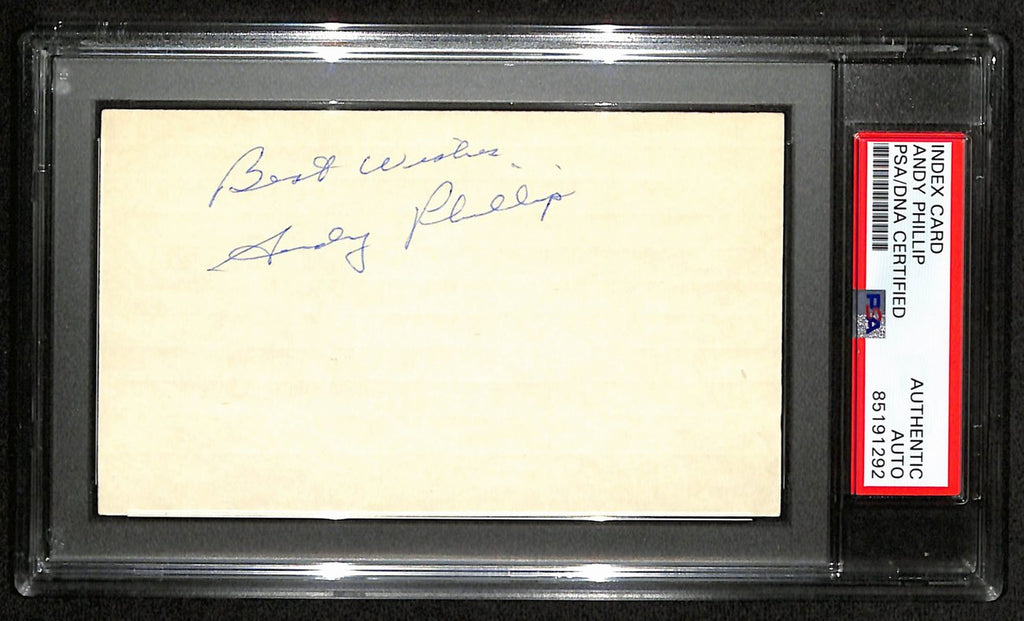 Best Wishes
Andy Phillip
INDEX CARD
ANDY PHILLIP
PSA/DNA CERTIFIED
AUTHENTIC
AUTO
85191292
PSA